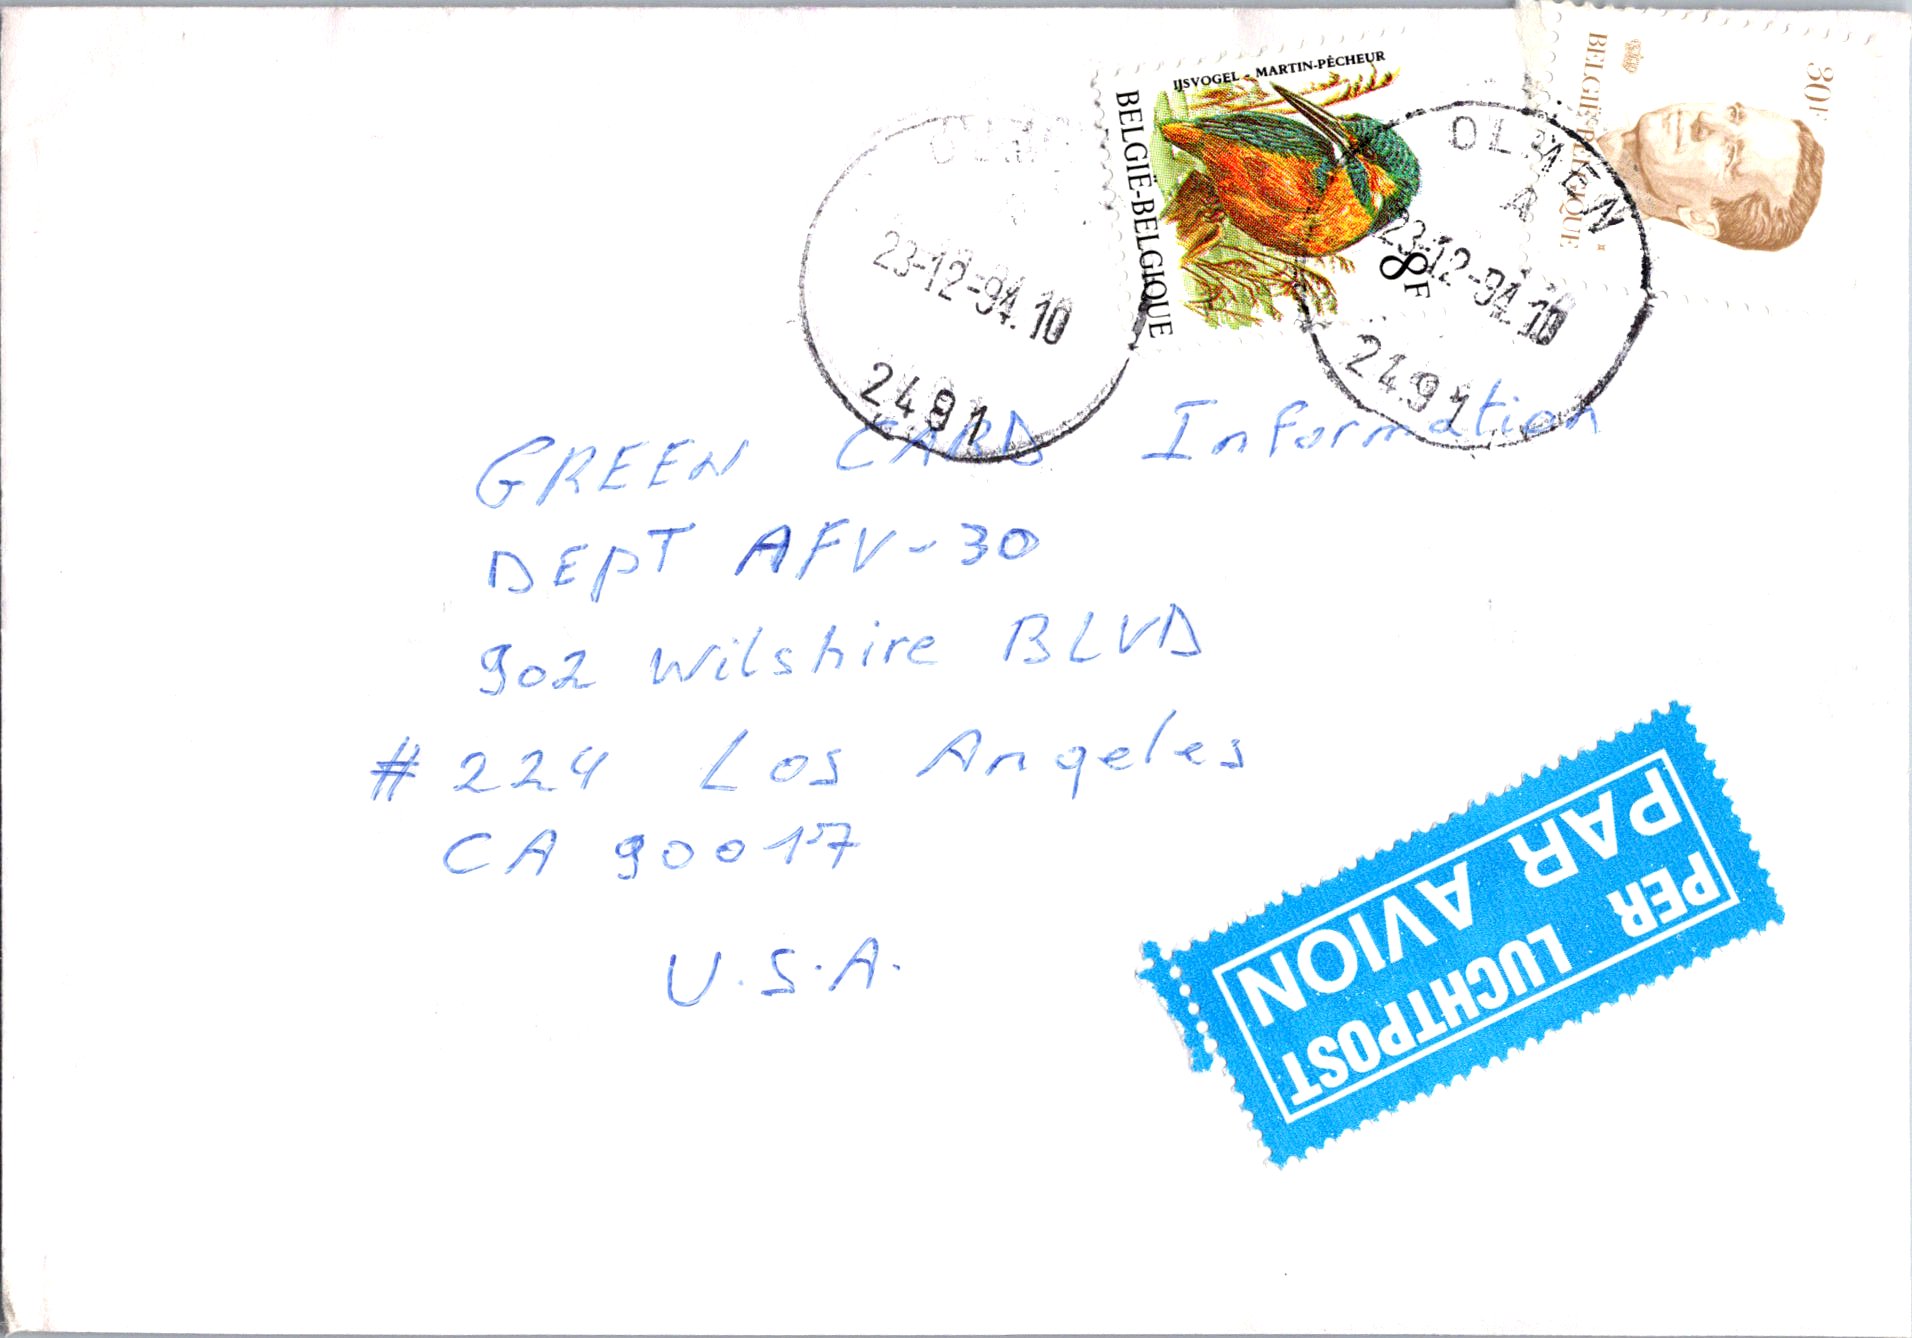 IJSVOGEL - MARTIN-PÊCHEUR
BELGIË-BELGIQUE
8F
30F
BELGIË-BELGIQUE
23-12-94.10
2491
OLMEN
A
23-12-94.10
2491
GREEN CARD Information
DEPT AFV-30
902 Wilshire BLVD
#224 Los Angeles
CA 90017
U.S.A.
PER LUCHTPOST
PAR AVION